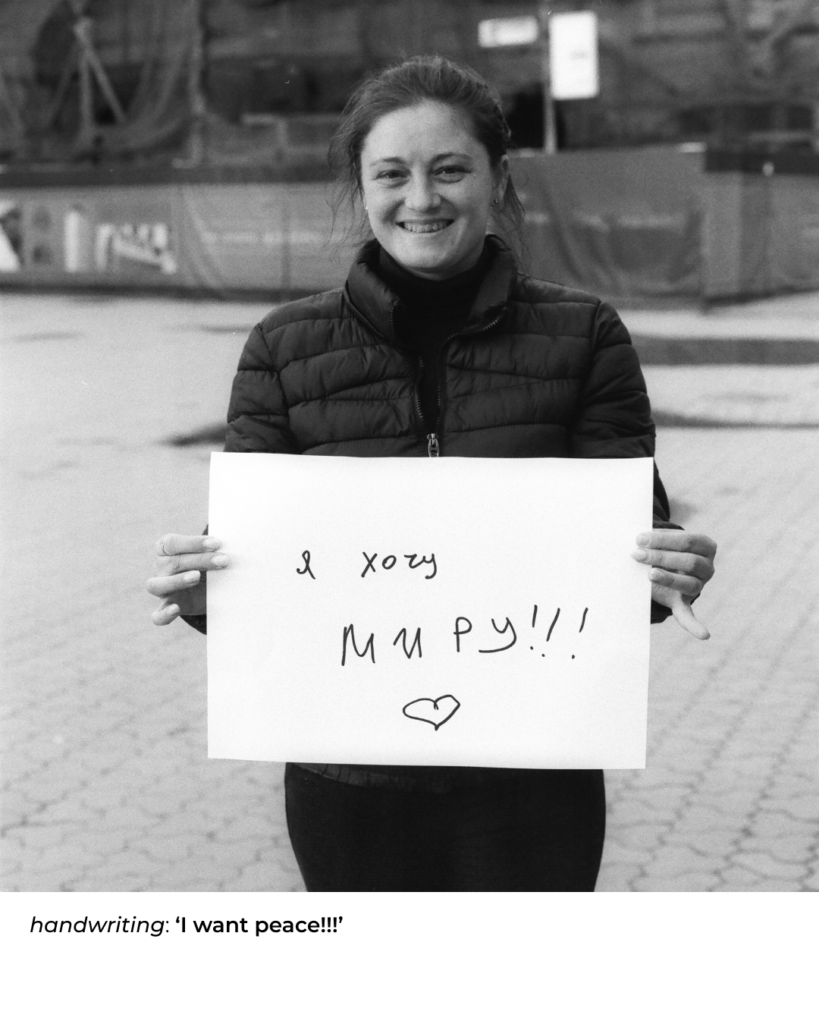 я хочу
МИРУ!!!
handwriting: ‘I want peace!!!’